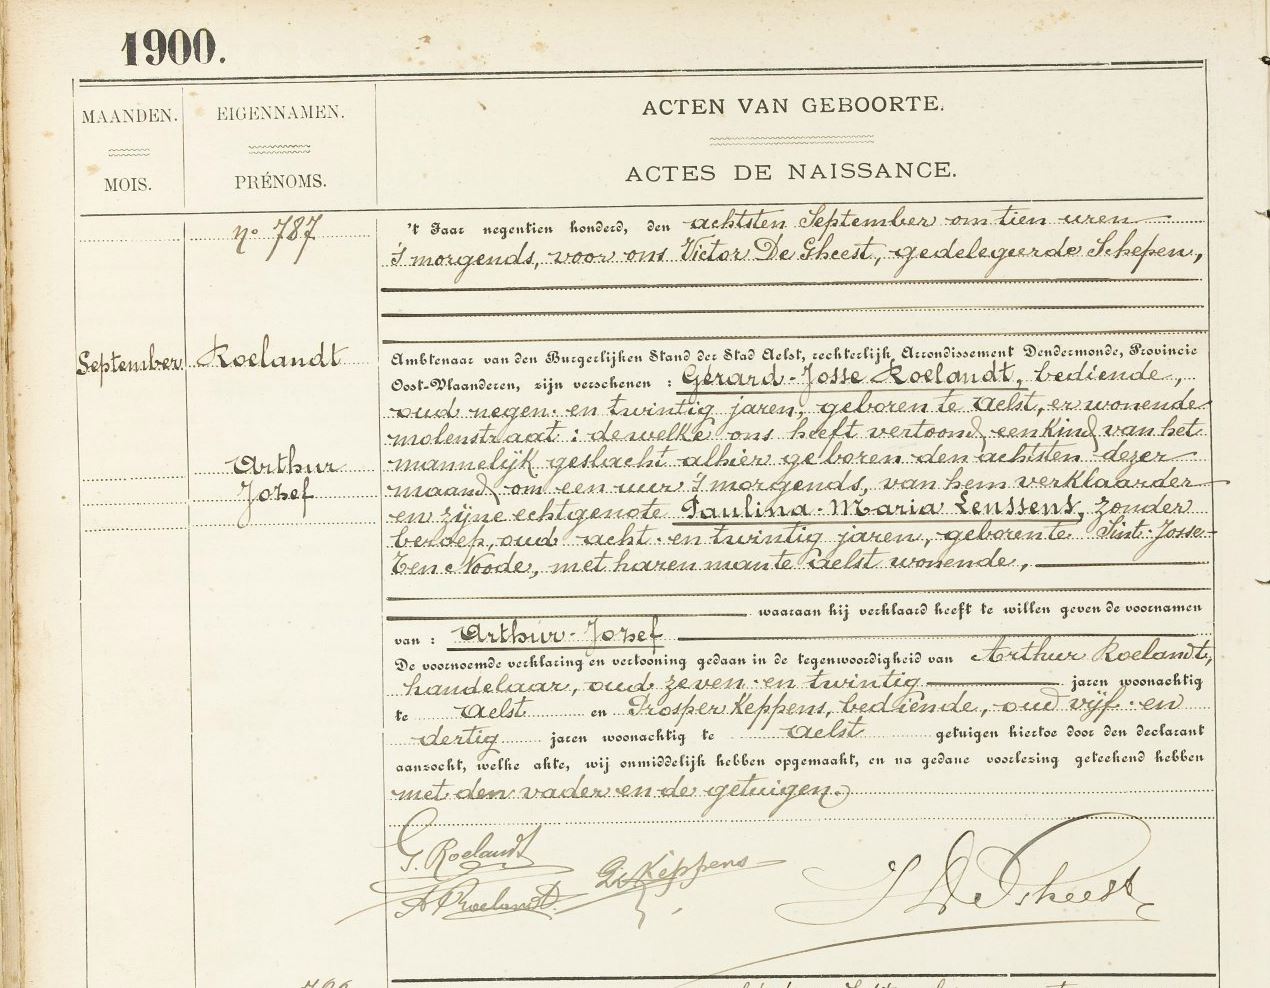 1900.
MAANDEN.
MOIS.
EIGENNAMEN.
PRÉNOMS.
ACTEN VAN GEBOORTE.
ACTES DE NAISSANCE.
nº 787
September
Roelandt
Arthur
Jozef
't Jaar negentien honderd, den achtsten September om tien uren
's morgends, voor ons Victor De Gheest, gedelegeerde Schepen,
Ambtenaar van den Burgerlijken Stand der Stad Aelst, rechterlijk Arrondissement Dendermonde, Provincie
Oost-Vlaanderen, zijn verschenen : Gérard-Josse Roelandt, bediende,
oud negen-en twintig jaren, geboren te Aelst, er wonende
molenstraat : dewelke ons heeft vertoond een kind van het
mannelijk geslacht alhier geboren den achtsten dezer
maand om een uur 's morgends, van hem verklaarder
en zijne echtgenote Paulina-Maria Lenssens, zonder
beroep, oud acht-en twintig jaren, geboren te Sint-Josse-
Ten Noode, met haren man te Aelst wonende,
waaraan hij verklaard heeft te willen geven de voornamen
van : Arthur-Jozef
De voornoemde verklaring en vertooning gedaan in de tegenwoordigheid van Arthur Roelandt,
handelaar, oud zeven-en twintig jaren woonachtig
te Aelst en Prosper Keppens, bediende, oud vijf-en
dertig jaren woonachtig te Aelst getuigen hiertoe door den declarant
aanzocht, welke akte, wij onmiddelijk hebben opgemaakt, en na gedane voorlezing geteekend hebben
met den vader en de getuigen.
G. Roelandt
A Roelandt
Keppens
De Gheest